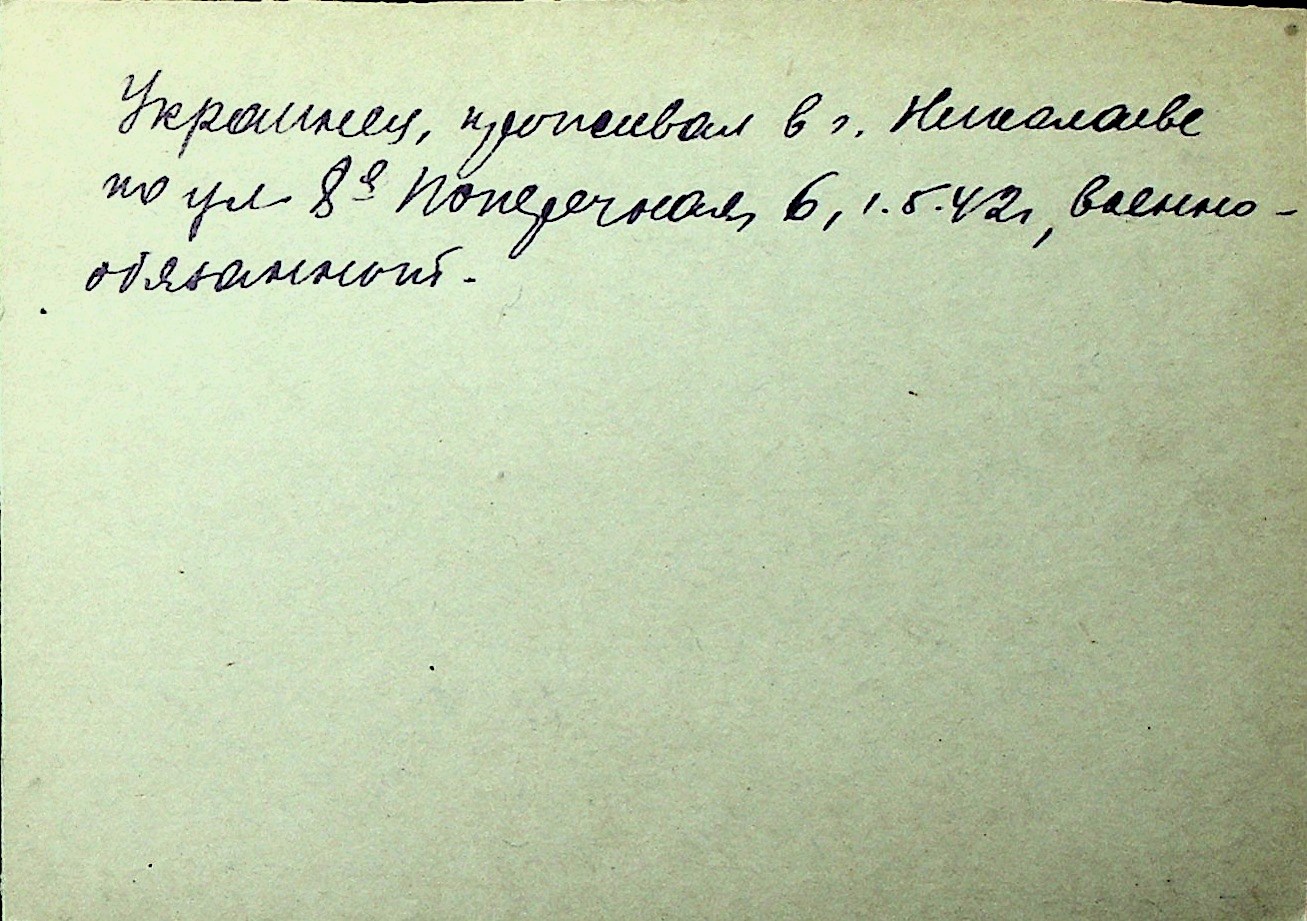 Украинец, проживал в г. Николаеве
по ул. 8я Поперечная, 6, 1.5.42г, военно-
обязанный.